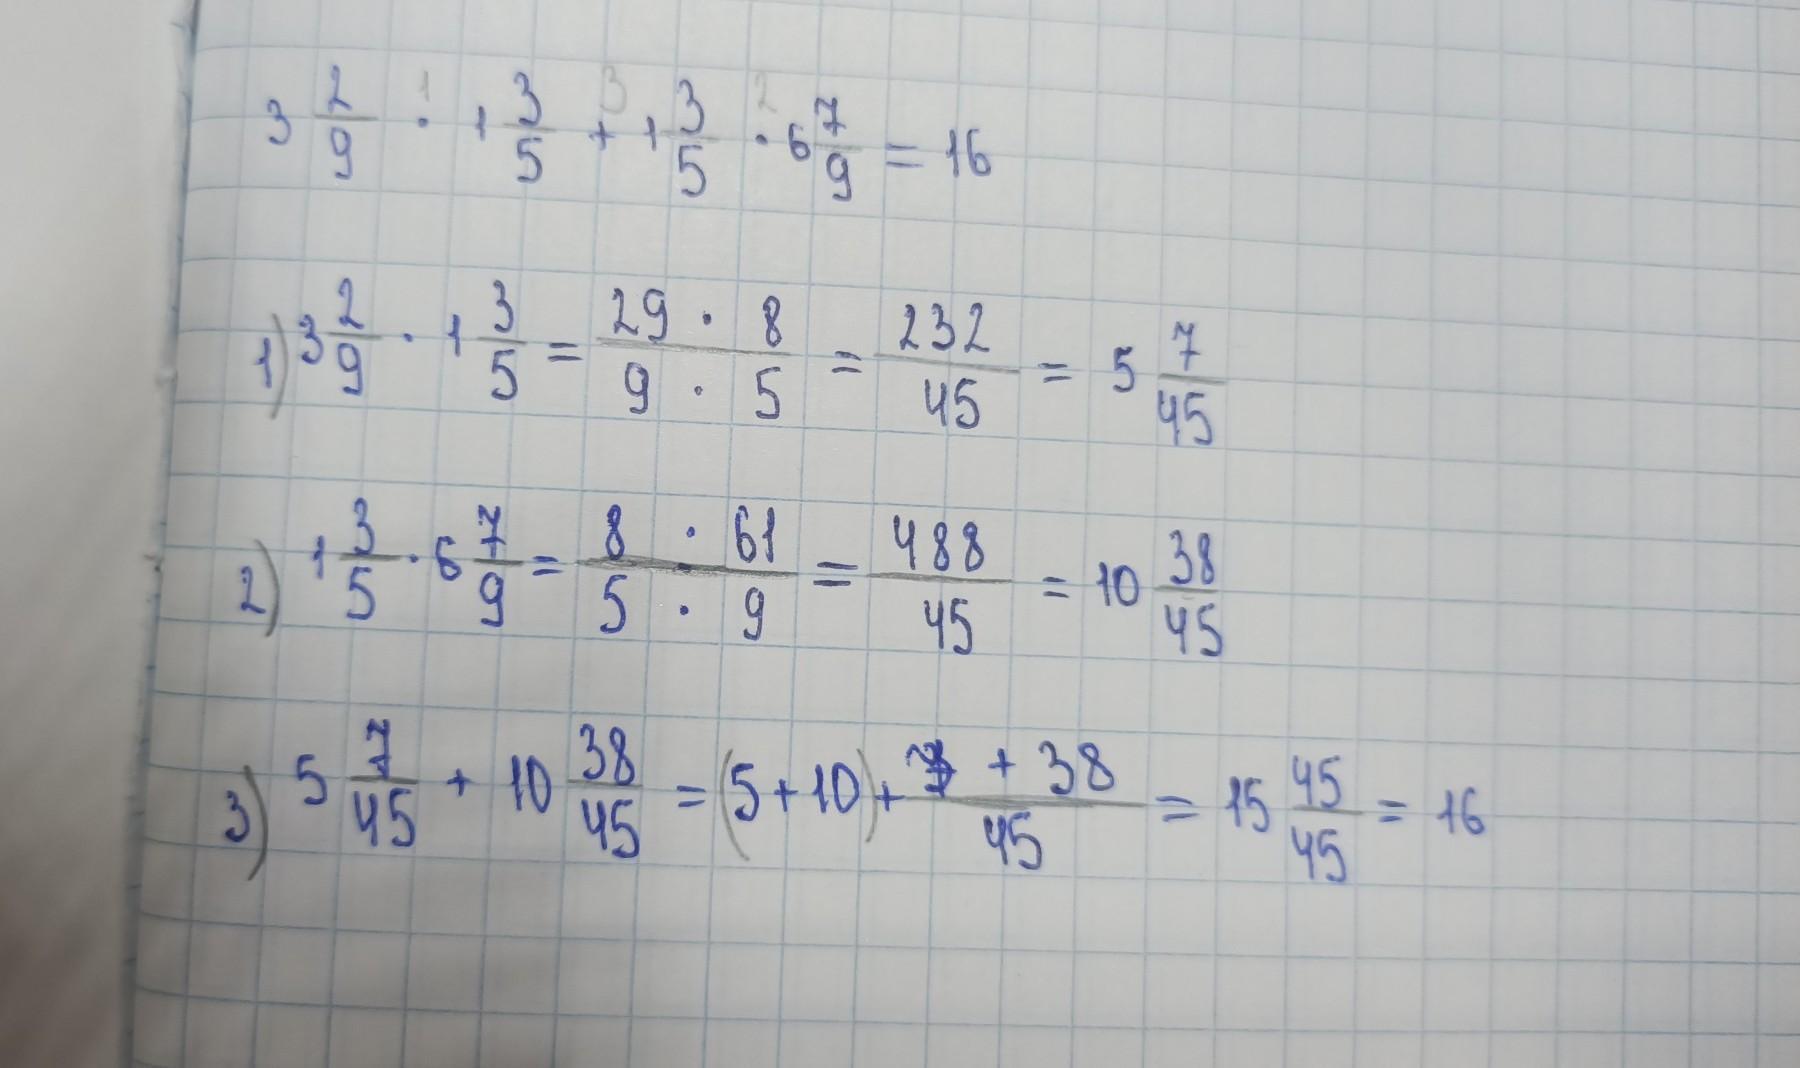 3 2/9 · 1 3/5 + 1 3/5 · 6 7/9 = 16
1) 3 2/9 · 1 3/5 = (29 · 8)/(9 · 5) = 232/45 = 5 7/45
2) 1 3/5 · 6 7/9 = (8 · 61)/(5 · 9) = 488/45 = 10 38/45
3) 5 7/45 + 10 38/45 = (5+10) + (7 + 38)/45 = 15 45/45 = 16